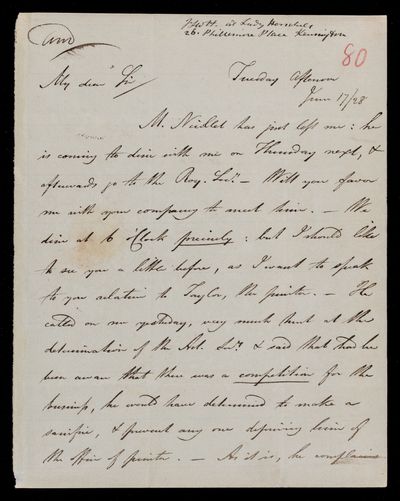 JFWH. at Lady Herschels
26. Phillimore Place Kensington
80
My dear Sir
Tuesday Afternoon
June 17/28
M. Nicollet has just left me: he
is coming to dine with me on Thursday next, &
afterwards go to the Roy. Socy. — Will you favor
me with your company to meet him. — We
dine at 6 o'Clock precisely: but I should like
to see you a little before, as I want to speak
to you relative to Taylor, the printer. — He
called on me yesterday, very much hurt at the
determination of the Ast. Socy. & said that had he
been aware that there was a competition for the
business, he would have determined to make a
sacrifice, & prevent any one depriving him of
the office of printer. — As it is, he complains